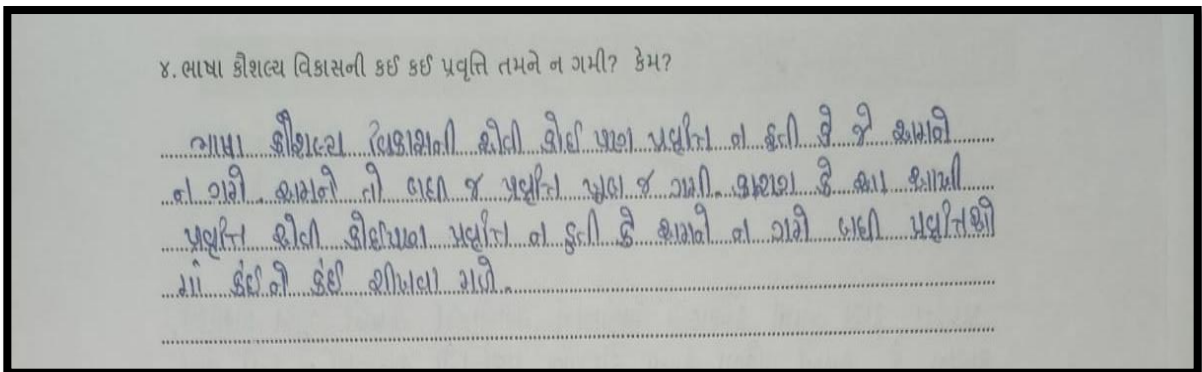 ૪. ભાષા કૌશલ્ય વિકાસની કઈ કઈ પ્રવૃત્તિ તમને ન ગમી? કેમ?
ભાષા કૌશલ્ય વિકાશની એવી કોઈ પણ પ્રવૃત્તિ ન હતી કે જે અમને
ન ગમે. અમને તો બધી જ પ્રવૃત્તિ ખુબ જ ગમી. કારણ કે આ આખી
પ્રવૃત્તિ એવી કોઈપણ પ્રવૃત્તિ ન હતી કે અમને ન ગમે બધી પ્રવૃત્તિઓ
માં કંઈ ને કંઈ શીખવા મળે.